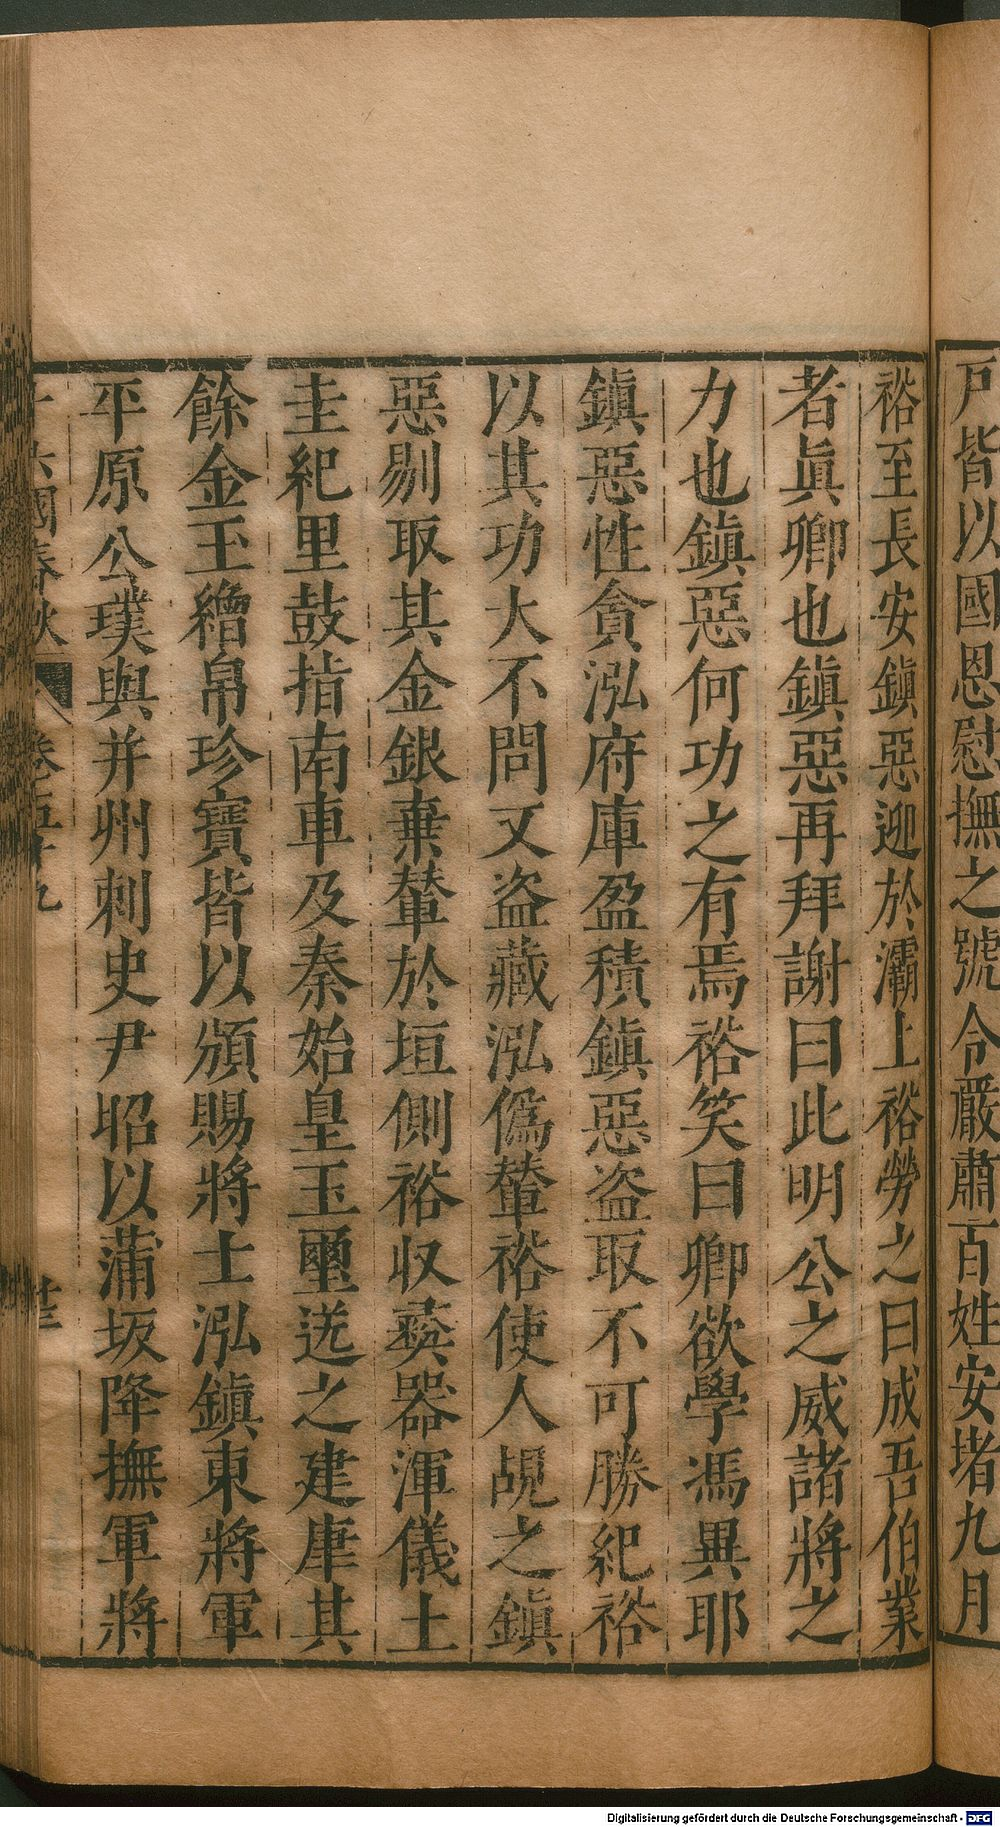 戸皆以國恩慰撫之號令嚴肅百姓安堵九月
裕至長安鎮惡迎於灞上裕勞之曰成吾伯業
者眞卿也鎮惡再拜謝曰此明公之威諸將之
力也鎮惡何功之有焉裕笑曰卿欲學馮異耶
鎮惡性貪泓府庫盈積鎮惡盗取不可勝紀裕
以其功大不問又盗藏泓僞輦裕使人覘之鎮
惡剔取其金銀棄輦於垣側裕収彝器渾儀土
圭紀里鼓指南車及秦始皇玉璽送之建康其
餘金玉繒帛珍寶皆以頒賜將士泓鎮東將軍
平原公璞與并州刺史尹昭以蒲坂降撫軍將
十六國春秋 卷五十九 廿三
Digitalisierung gefördert durch die Deutsche Forschungsgemeinschaft - DFG